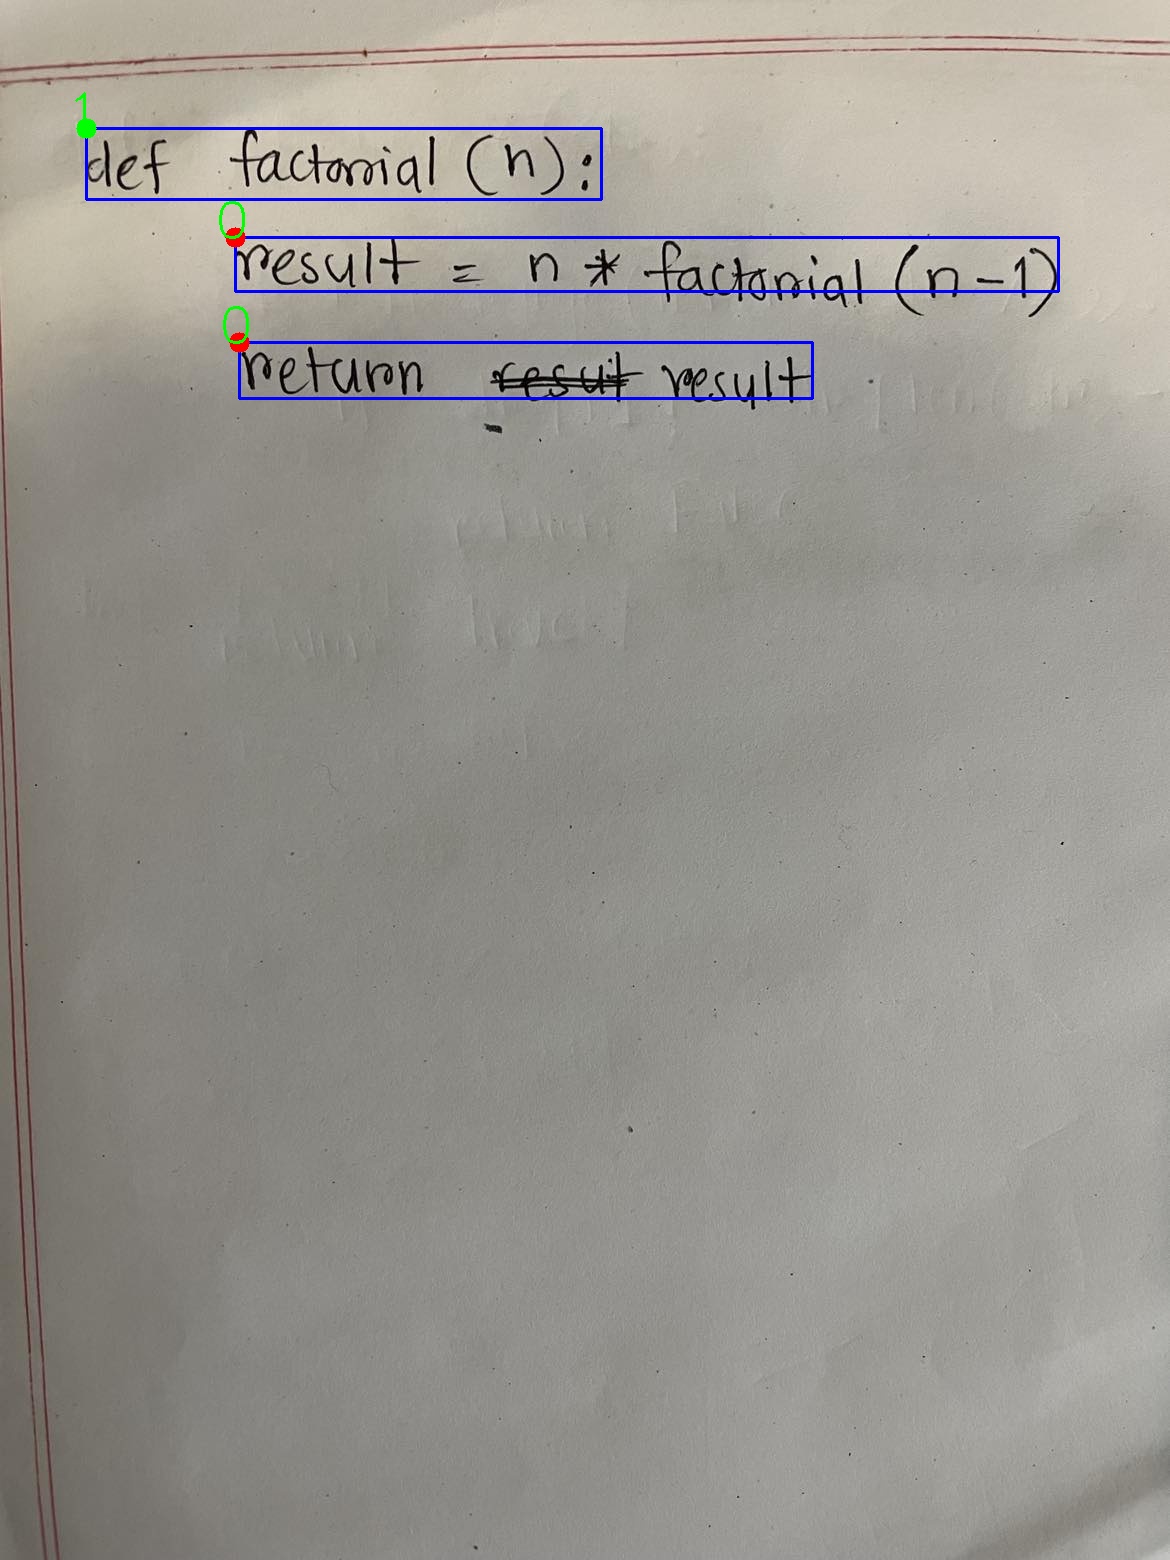 1
def factorial (n):
0
result = n * factorial (n-1)
0
return resut result